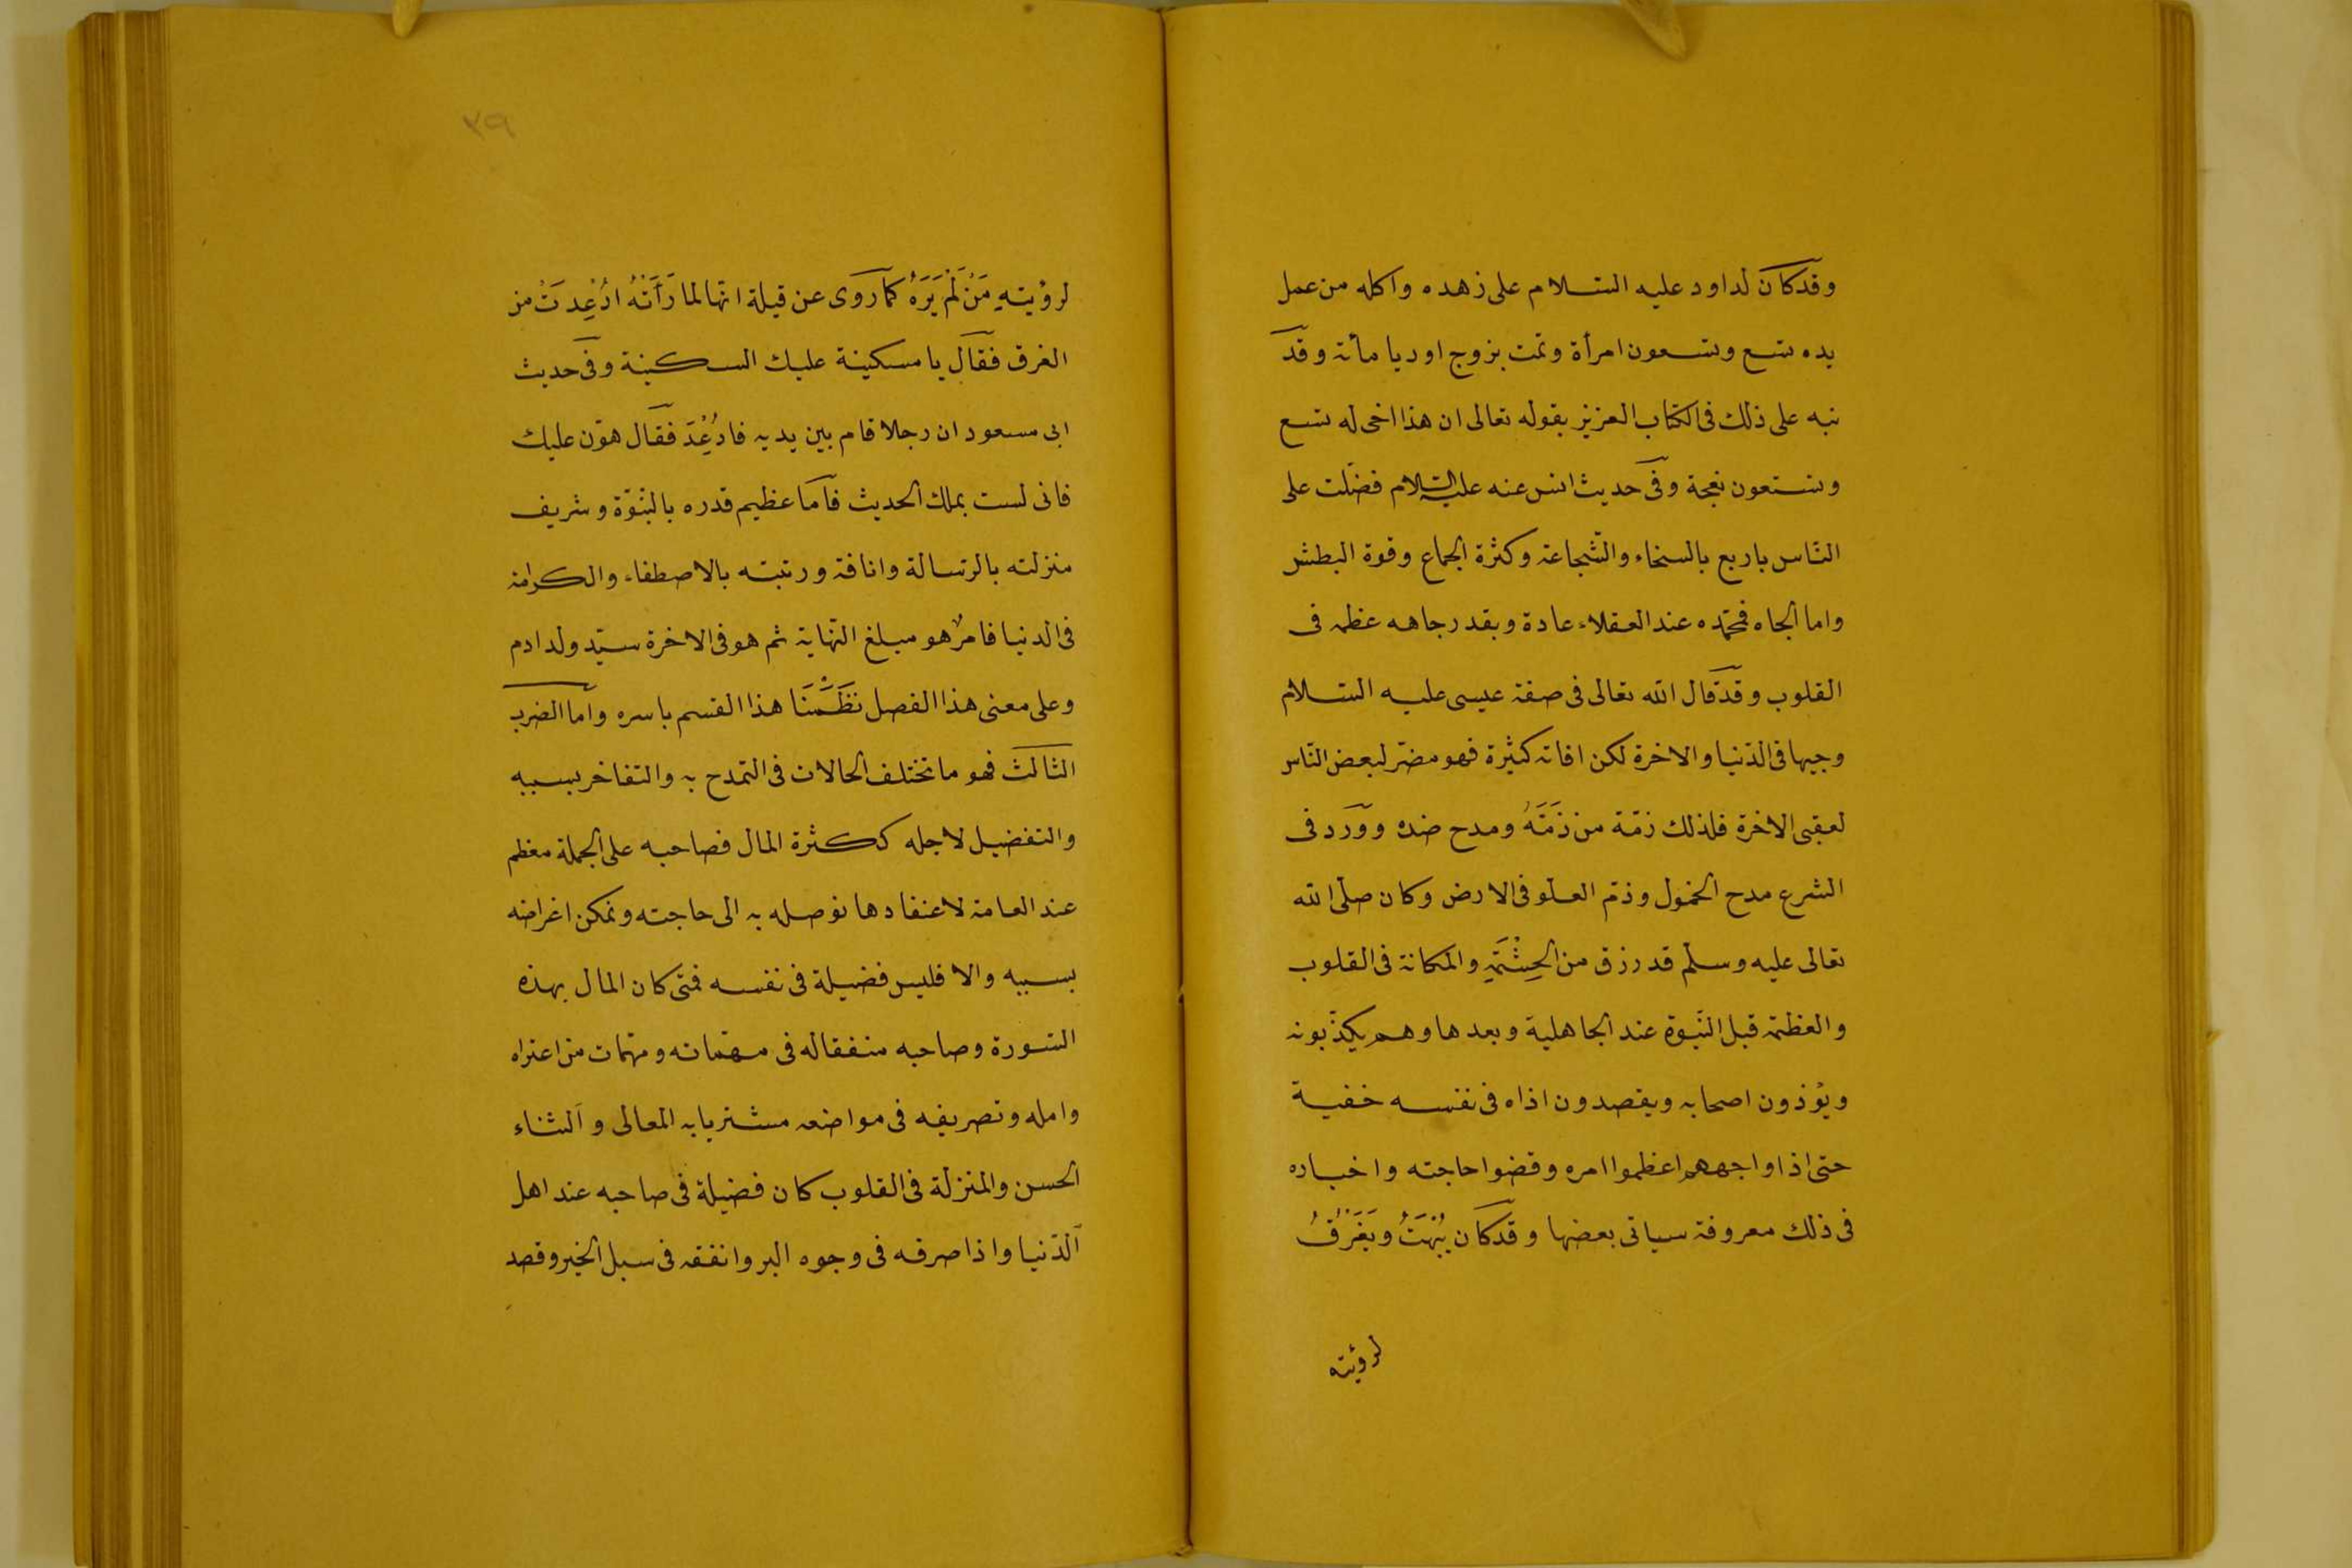 وقد كان لداود عليه السلام على زهده واكله من عمل
يده تسع وتسعون امرأة وتمت بزوج اوريا مائة وقد
نبه على ذلك فى الكتاب العزيز بقوله تعالى ان هذا اخى له تسع
وتسعون نعجة وفى حديث انس عنه عليه السلام فضلت على
الناس باربع بالسخاء والشجاعة وكثرة الجماع وقوة البطش
واما الجاه فمحمده عند العقلاء عادة وبقدر جاهه عظمه فى
القلوب وقد قال الله تعالى فى صفة عيسى عليه السلام
وجيها فى الدنيا والاخرة لكن افاته كثيرة فهو مضر لبعض الناس
لعقبى الاخرة فلذلك ذمّة من ذَمَّهُ ومدح ضده وورد فى
الشرع مدح الخمول وذم العلو فى الارض وكان صلّى الله
تعالى عليه وسلّم قد رزق من الحِشْمَةِ والمكانة فى القلوب
والعظمة قبل النبوة عند الجاهلية وبعدها وهم يكذّبونه
ويؤذون اصحابه ويقصدون اذاه فى نفسه خفية
حتى اذا واجههم اعظموا امره وقضوا حاجته واخباره
فى ذلك معروفة سياتى بعضها وقد كان يُبْهَتُ ويَفْرَقُ
لرؤيته
٣٩
لرؤيتهِ مَنْ لَمْ يَرَهُ كما روى عن قيلة انها لما رَأَتْهُ ارُعِدَتْ من
الفرق فقال يا مسكينة عليك السكينة وفى حديث
ابى مسعود ان رجلا قام بين يديه فارُعِدَ فقال هوّن عليك
فانى لست بملك الحديث فاما عظيم قدره بالنبوّة وشريف
منزلته بالرسالة وانافة ورتبته بالاصطفاء والكرامة
فى الدنيا فامرٌ هو مبلغ النهاية ثم هو فى الاخرة سيّد ولد ادم
وعلى معنى هذا الفصل نَظَمْنَا هذا القسم باسره واما الضرب
الثالث فهو ما تختلف الحالات فى التمدح به والتفاخر بسببه
والتفضيل لاجله ككثرة المال فصاحبه على الجملة معظم
عند العامة لاعتقادها توصله به الى حاجته وتمكن اغراضه
بسببه والا فليس فضيلة فى نفسه فمتى كان المال بهذه
السورة وصاحبه منفقا له فى مهماته ومهمات من اعتراه
وامله وتصريفه فى مواضعه مشتريا به المعالى والثناء
الحسن والمنزلة فى القلوب كان فضيلة فى صاحبه عند اهل
الدّنيا واذا صرفه فى وجوه البر وانفقه فى سبل الخير وقصد